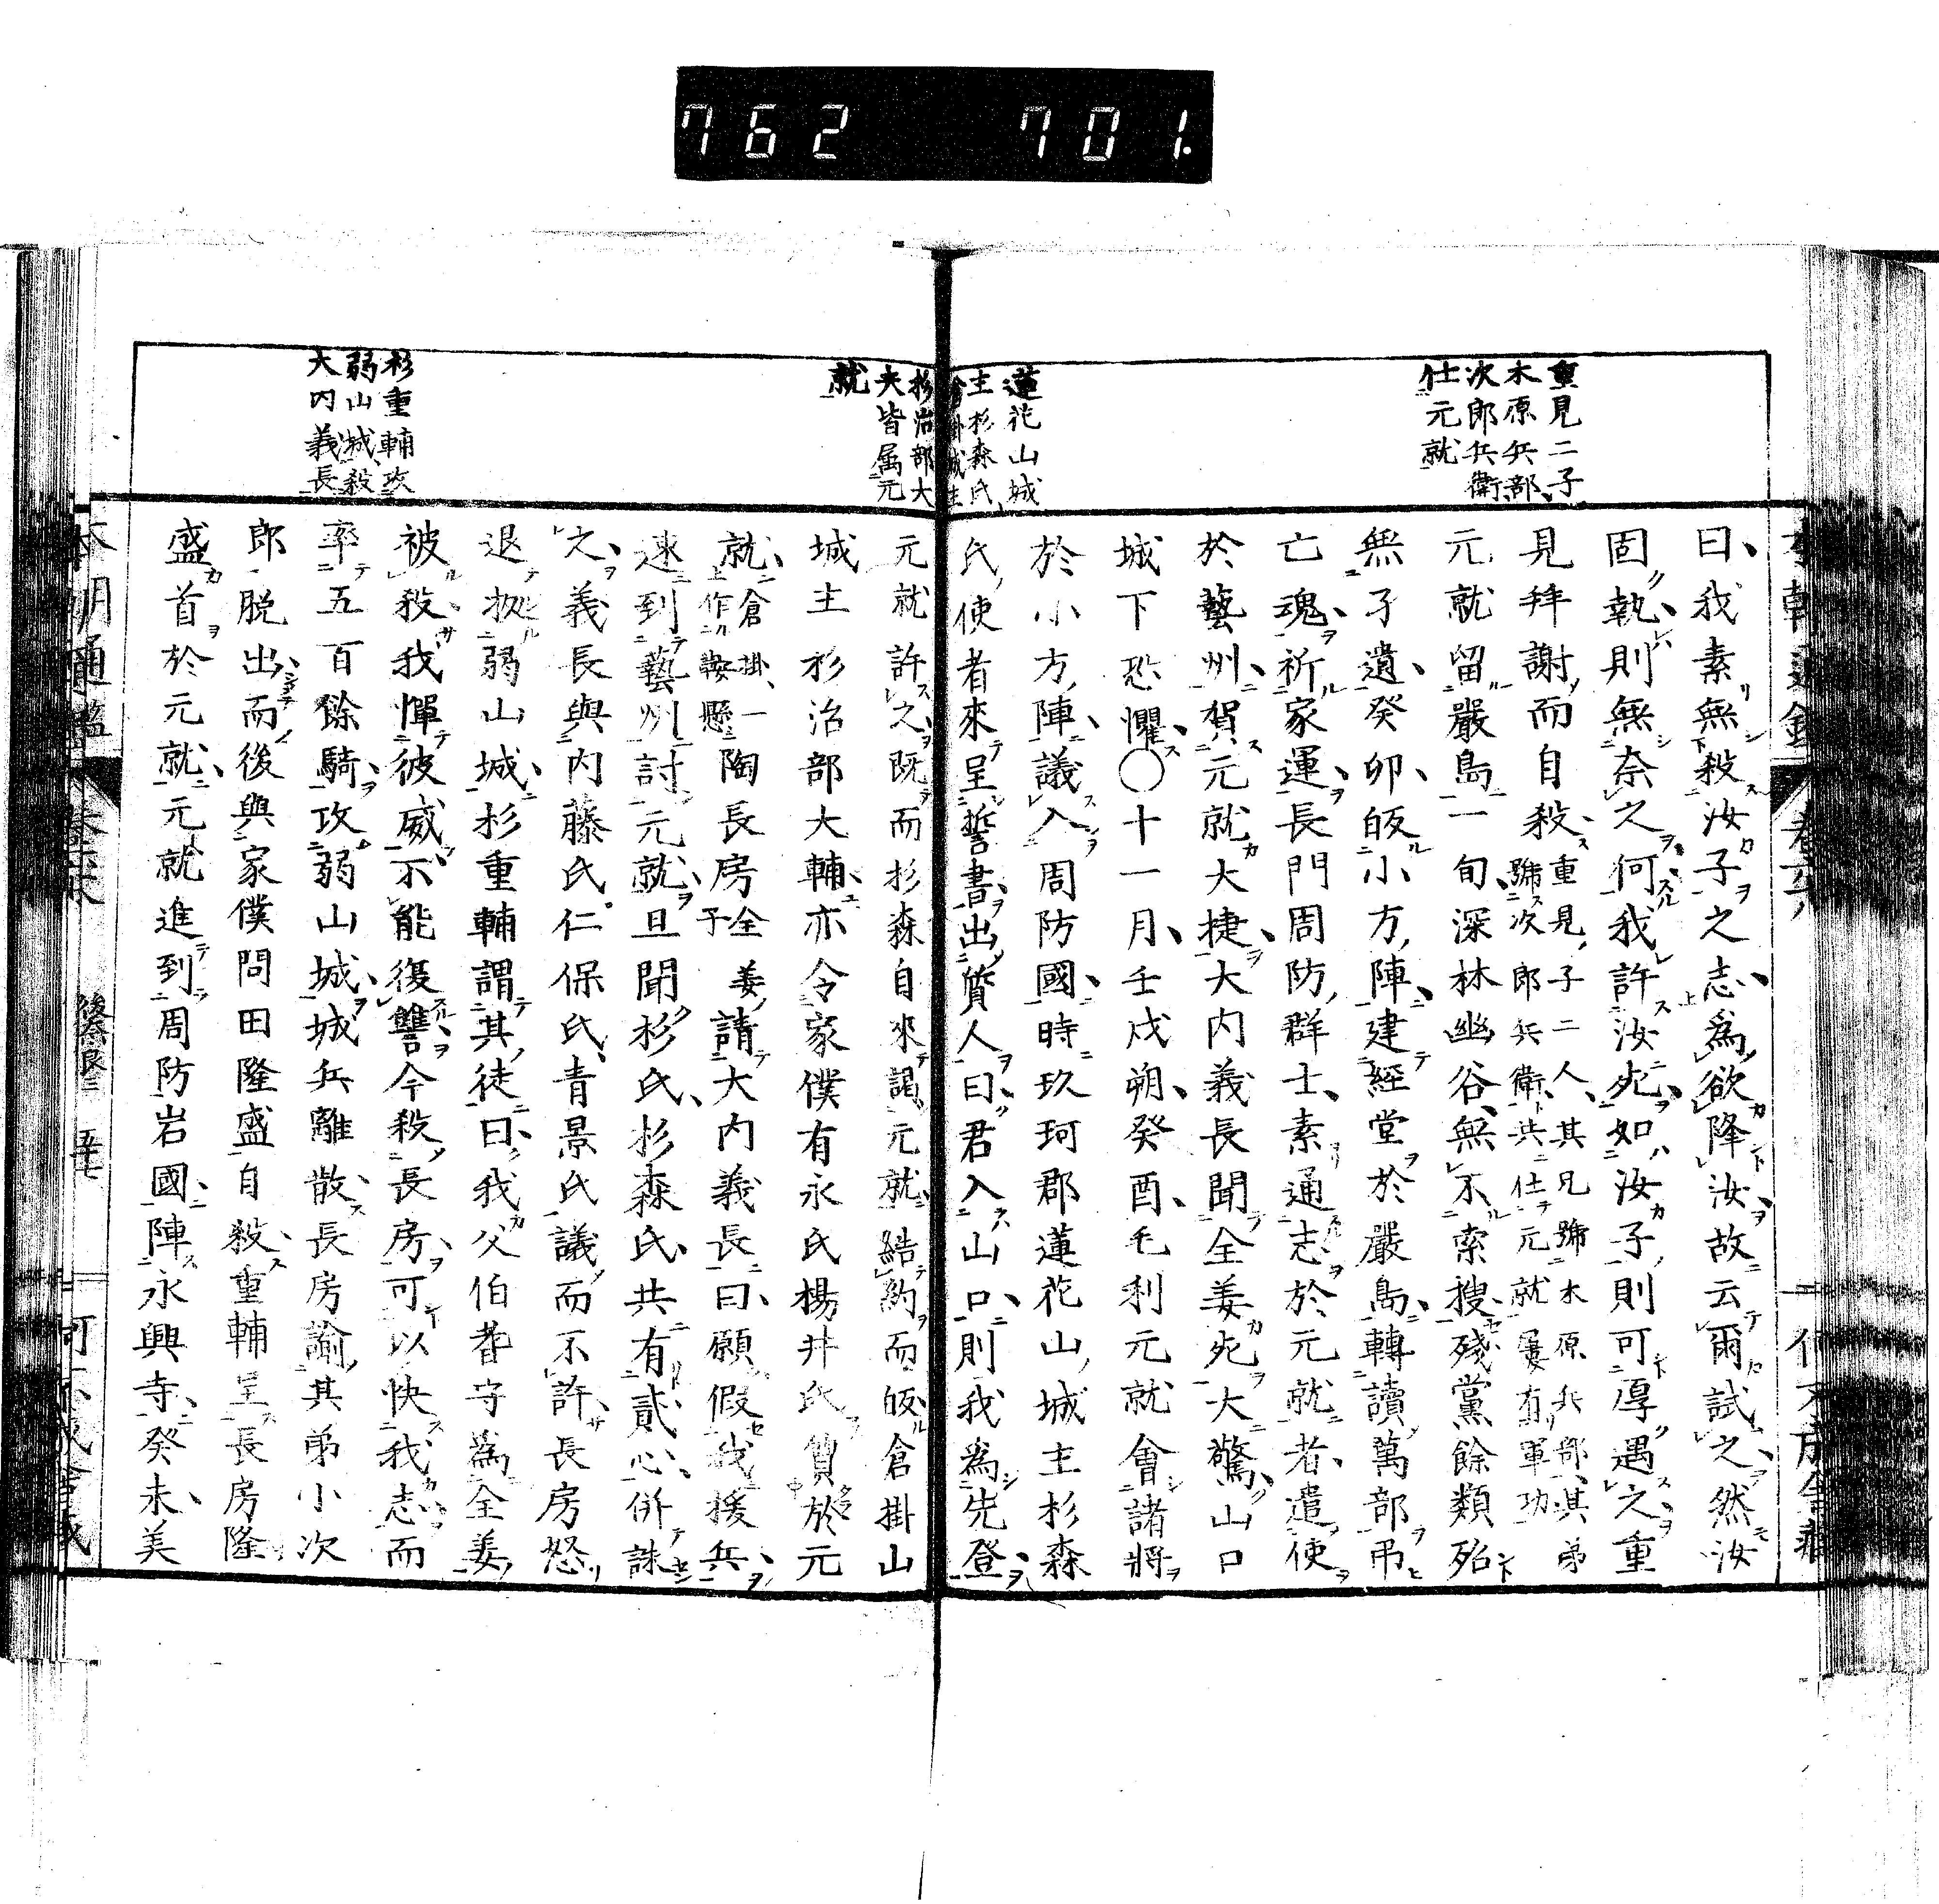 762 701.
重見二子
木原兵部
次郎兵衛
仕元就
蓮花山城
主杉森氏
杉治部大
夫皆属元
就
杉重輔攻
弱山城殺
大内義長
曰我素無殺汝子之志為欲降汝故云爾試之然汝
固執則無奈之何我許汝死如汝子則可厚遇之重
見拜謝而自殺重見子二人其兄號木原兵部其弟
號次郎兵衛共仕元就屢有軍功
元就留嚴島一旬深林幽谷無不索搜殘黨餘類殆
無孑遺癸卯皈小方陣建經堂於嚴島轉讀萬部弔
亡魂祈家運長門周防群士素通志於元就者遣使
於藝州賀元就大捷大内義長聞全姜死大驚山口
城下恐懼〇十一月壬戌朔癸酉毛利元就會諸將
於小方陣議入周防國時玖珂郡蓮花山城主杉森
氏使者來呈誓書出質人曰君入山口則我為先登
元就許之既而杉森自來謁元就結約而皈倉掛山
城主杉治部大輔亦令家僕有永氏楊井氏質於元
就倉掛一
作鞍懸陶長房全
姜子請大内義長曰願假我援兵
速到藝州討元就且聞杉氏杉森氏共有貳心併誅
之義長與内藤氏仁保氏青景氏議而不許長房怒
退拠弱山城杉重輔謂其徒曰我父伯耆守為全姜
被殺我憚彼威不能復讐今殺長房可以快我志而
率五百餘騎攻弱山城城兵離散長房諭其弟小次
郎脱出而後與家僕問田隆盛自殺重輔呈長房隆
盛首於元就元就進到周防岩國陣永興寺癸未美
本朝通鑑
後奈良三 五十七